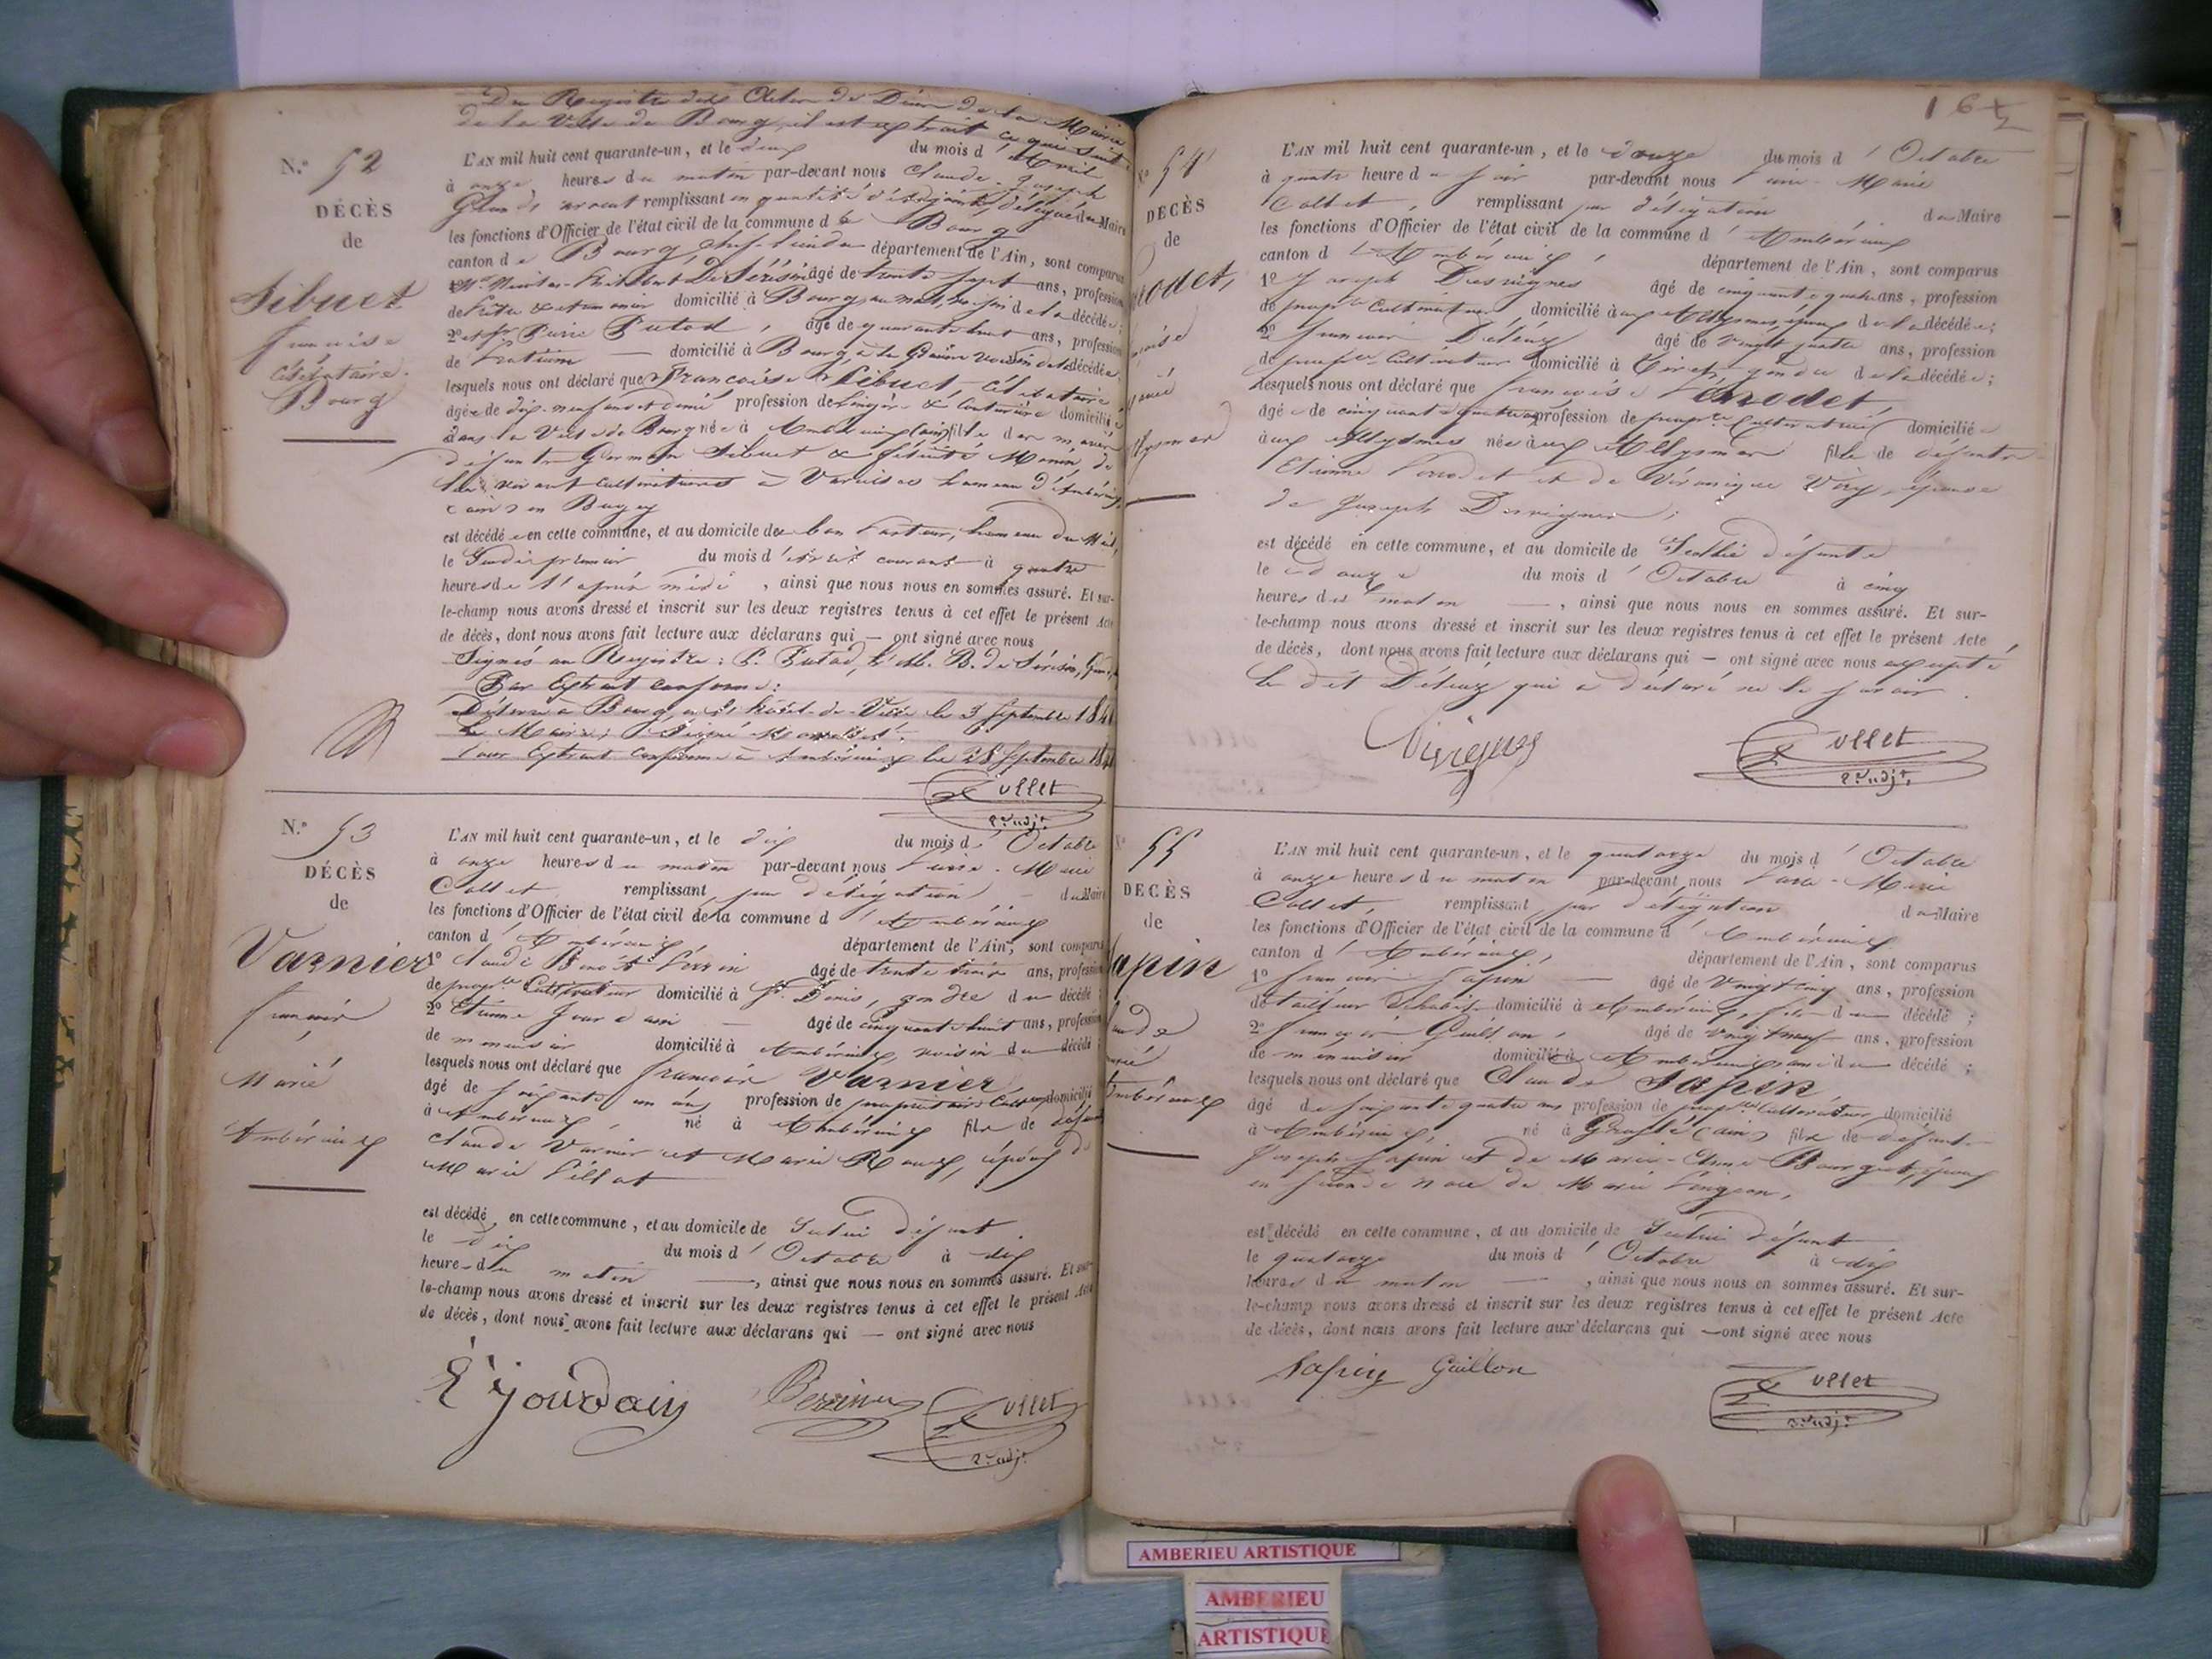 Du Registre des Actes de Décès de la Mairie
de la Ville de Bourg, il est extrait ce qui suit
N.° 52
DÉCÈS
de
Sibuet
françoise
célibataire
Bourg
L'AN mil huit cent quarante-un, et le deux du mois d'Avril
à onze heures du matin par-devant nous Claude-Joseph
avocat remplissant en qualité d'adjoint délégué du Maire
les fonctions d'Officier de l'état civil de la commune de Bourg
canton de Bourg chef-lieu du département de l'Ain, sont comparus
âgé de trente sept ans, profession
domicilié à Bourg de la décédée;
2° Putod, âgé de quarante huit ans, profession
de domicilié à Bourg voisin de la décédée
lesquels nous ont déclaré que Françoise Sibuet, célibataire
âgée de dix-neuf ans et demi profession de lingère & couturière domiciliée
dans la Ville de Bourg née à fille des mariés
défunt Germain Sibuet & Monin, de
vivant cultivateurs à Vareilles hameau d'Ambérieux
(ain) en Bugey
est décédée en cette commune, et au domicile du bon Pasteur, hameau du
le Jeudi premier du mois d'avril courant à quatre
heures de l'après midi, ainsi que nous nous en sommes assuré. Et sur-
le-champ nous avons dressé et inscrit sur les deux registres tenus à cet effet le présent Acte
de décès, dont nous avons fait lecture aux déclarans qui — ont signé avec nous
Signés au Registre: P. Putod,
Par Extrait conforme:
Délivré à Bourg, à l'hôtel-de-Ville le 3 Septembre 1841
Le Maire,
Pour Extrait conforme à Ambérieux le 28 Septembre 1841
Collet
2e adjt
N.° 53
DÉCÈS
de
Varnier
françois
Marié
Ambérieux
L'AN mil huit cent quarante-un, et le dix du mois d'Octobre
à onze heures du matin par-devant nous Pierre-Marie
Collet, remplissant par délégation du Maire
les fonctions d'Officier de l'état civil de la commune d'Ambérieux
canton d'Ambérieux département de l'Ain, sont comparus
1° Claude Benoît Perrin âgé de trente trois ans, profession
de propre Cultivateur domicilié à St Denis, gendre du décédé;
2° Etienne Jourdain — âgé de cinquante huit ans, profession
de menuisier domicilié à Ambérieux, voisin du décédé;
lesquels nous ont déclaré que François Varnier,
âgé de soixante un ans profession de propriétaire Cultr domicilié
à Ambérieux, né à Ambérieux fils de défunt
Claude Varnier et Marie Roux, époux de
Marie
est décédé en cette commune, et au domicile de Sudit défunt
le dix du mois d'Octobre à dix
heures du matin —, ainsi que nous nous en sommes assuré. Et sur-
le-champ nous avons dressé et inscrit sur les deux registres tenus à cet effet le présent Acte
de décès, dont nous avons fait lecture aux déclarans qui — ont signé avec nous
E Jourdain Collet
2e adjt
N° 54
DÉCÈS
de
L'AN mil huit cent quarante-un, et le douze du mois d'Octobre
à quatre heure du soir par-devant nous Pierre-Marie
Collet, remplissant par délégation du Maire
les fonctions d'Officier de l'état civil de la commune d'Ambérieux
canton d'Ambérieux, département de l'Ain, sont comparus
1° Joseph Desvignes âgé de cinquante quatre ans, profession
de propre Cultivateur, domicilié aux Allysmes, époux de la décédée;
2° françois âgé de vingt quatre ans, profession
de propre Cultivateur domicilié à gendre de la décédée;
lesquels nous ont déclaré que françoise
âgée de cinquante quatre ans profession de propre Cultivatrice domiciliée
aux Allysmes née aux Allysmes fille de défunts
Etienne et de Véronique épouse
de Joseph Desvignes;
est décédé en cette commune, et au domicile de défunte
le douze du mois d'Octobre à cinq
heures du matin —, ainsi que nous nous en sommes assuré. Et sur-
le-champ nous avons dressé et inscrit sur les deux registres tenus à cet effet le présent Acte
de décès, dont nous avons fait lecture aux déclarans qui — ont signé avec nous excepté
le dit qui a déclaré ne le savoir.
Collet
2e adjt
55
DÉCÈS
de
L'AN mil huit cent quarante-un, et le quatorze du mois d'Octobre
à onze heures du matin par-devant nous Pierre-Marie
Collet, remplissant par délégation du Maire
les fonctions d'Officier de l'état civil de la commune d'Ambérieux
canton d'Ambérieux, département de l'Ain, sont comparus
1° françois Sapin — âgé de vingt cinq ans, profession
de tailleur d'habits domicilié à Ambérieux, fils du décédé;
2° françois Guillon, âgé de vingt neuf ans, profession
de menuisier domicilié à Ambérieux ami du décédé;
lesquels nous ont déclaré que Claude Sapin
âgé de soixante quatre ans profession de propre Cultivateur domicilié
à Ambérieux, né à (ain) fils de défunts
Joseph Sapin et de Marie-Anne époux
en secondes noces de Marie
est décédé en cette commune, et au domicile de Sudit défunt
le quatorze du mois d'Octobre à dix
heures du matin —, ainsi que nous nous en sommes assuré. Et sur-
le-champ nous avons dressé et inscrit sur les deux registres tenus à cet effet le présent Acte
de décès, dont nous avons fait lecture aux déclarans qui — ont signé avec nous
Sapin Guillon
Collet
2e adjt
AMBERIEU ARTISTIQUE
AMBERIEU
ARTISTIQUE